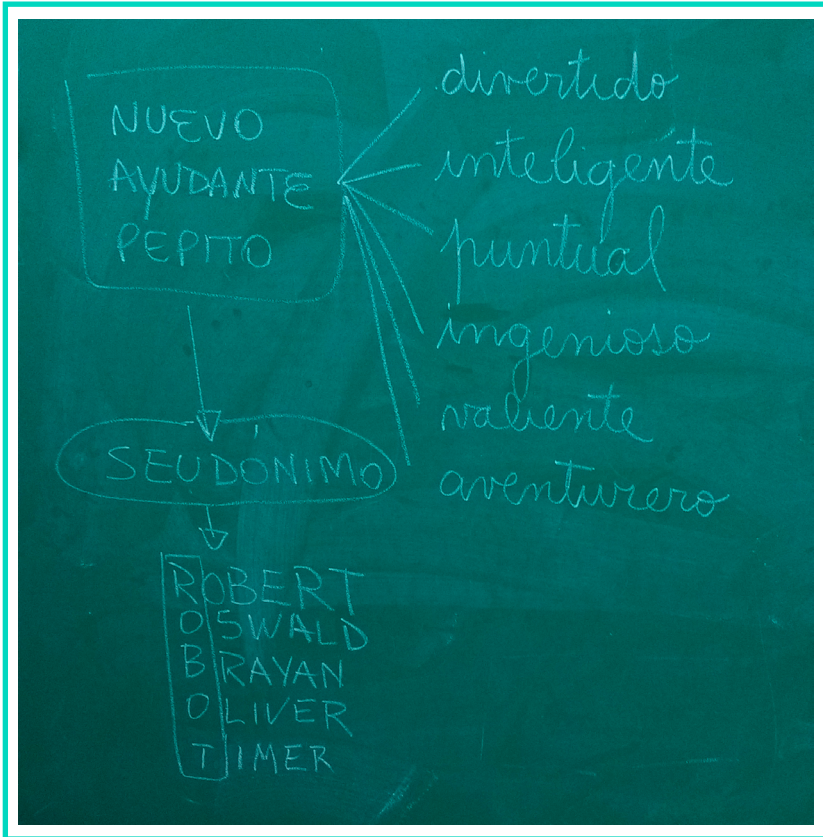 NUEVO
AYUDANTE
PEPITO
divertido
inteligente
puntual
ingenioso
valiente
aventurero
SEUDÓNIMO
ROBERT
OSWALD
BRAYAN
OLIVER
TIMER